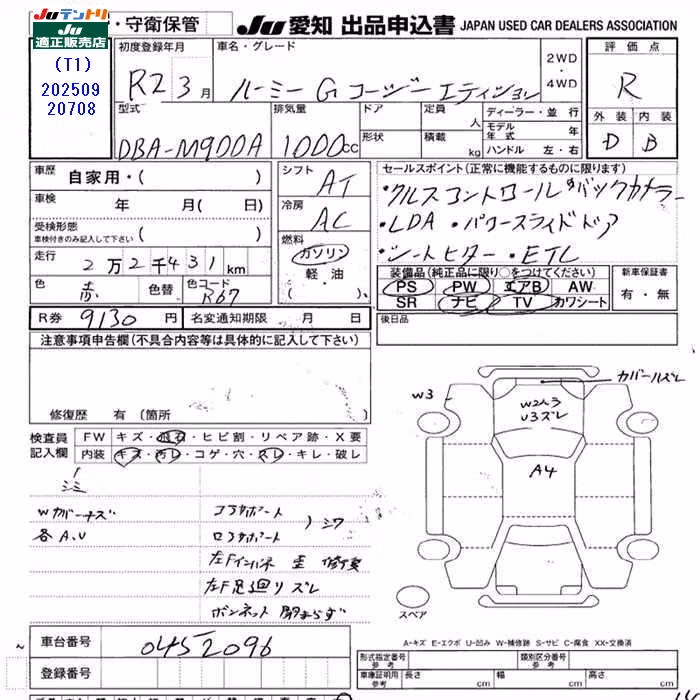 JUテントリ
JU適正販売店
・守衛保管
JU 愛知 出品申込書 JAPAN USED CAR DEALERS ASSOCIATION
(T1)
202509
20708
初度登録年月
R2 3月
車名・グレード
ルーミー G コージーエディション
2WD
・
4WD
評価点
R
外装 内装
D B
型式
DBA-M900A
排気量
1000cc
ドア
形状
定員 人
積載 kg
ディーラー・並行
モデル年式 年
ハンドル 左・右
車歴 自家用・( )
車検 年 月( 日)
受検形態
車検付きのみ記入して下さい ( )
走行 2万2千431km
色 赤 色替 色コード R67
シフト AT
冷房 AC
燃料
ガソリン
軽・油
( )
セールスポイント(正常に機能するものに限ります)
・クルスコントロール・バックカメラ
・LDA・パワースライドドア
・シートヒター・ETC
装備品(純正品に限り○をつけてください)
PS PW エアB AW
SR ナビ TV カワシート
新車保証書
有・無
後日品
R券 9130円 名変通知期限 月 日
注意事項申告欄(不具合内容等は具体的に記入して下さい)
修復歴 有(箇所
検査員記入欄
FW キズ・飛石・ヒビ割・リペア跡・X要
内装 キズ・汚レ・コゲ・穴・スレ・キレ・破レ
シミ
Wカバーキズ
各A、U
コアサポート
ロアサポート
)シワ
左Fインパネ 歪 修要
左F足廻リズレ
ボンネット 閉まらず
カバールズレ
W3
W2ムラ
U3ズレ
A4
スペア
A-キズ E-エクボ U-凹み W-補修跡 S-サビ C-腐食 XX-交換済
車台番号 0452096
登録番号
形式指定番号 参考
類別区分番号 参考
車庫証明用 参考 長さ cm 幅 cm 高さ cm